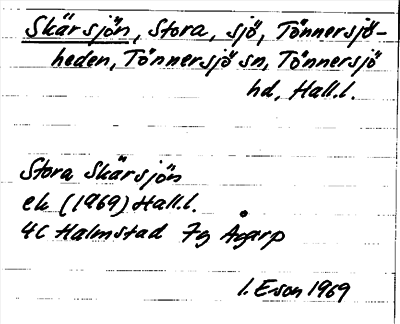 Skärsjön, Stora, sjö, Tönnersjö-
heden, Tönnersjö sn, Tönnersjö
hd, Hall.l.
Stora Skärsjön
ek (1969) Hall.l.
4C Halmstad 7g Ågarp
I. E-son 1969